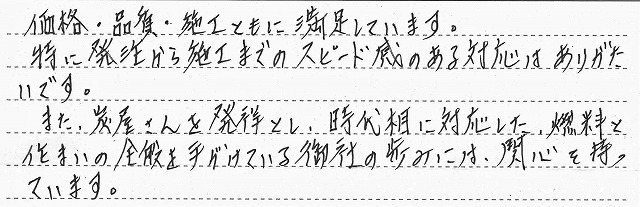 価格・品質・施工ともに満足しています。
特に発注から施工までのスピード感のある対応はありがた
いです。
また、炭屋さんを発祥とし、時代相に対応した、燃料と
住まいの全般を手がけている御社の歩みには、関心を持っ
ています。